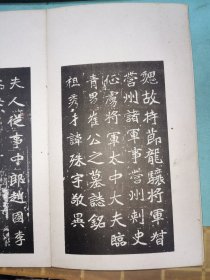 魏故持節龍驤將軍督
營州諸軍事營州刺史
征虜將軍太中大夫臨
青男崔公之墓誌銘
祖秀才諱殊字敬異
夫人從事中郎趙國李